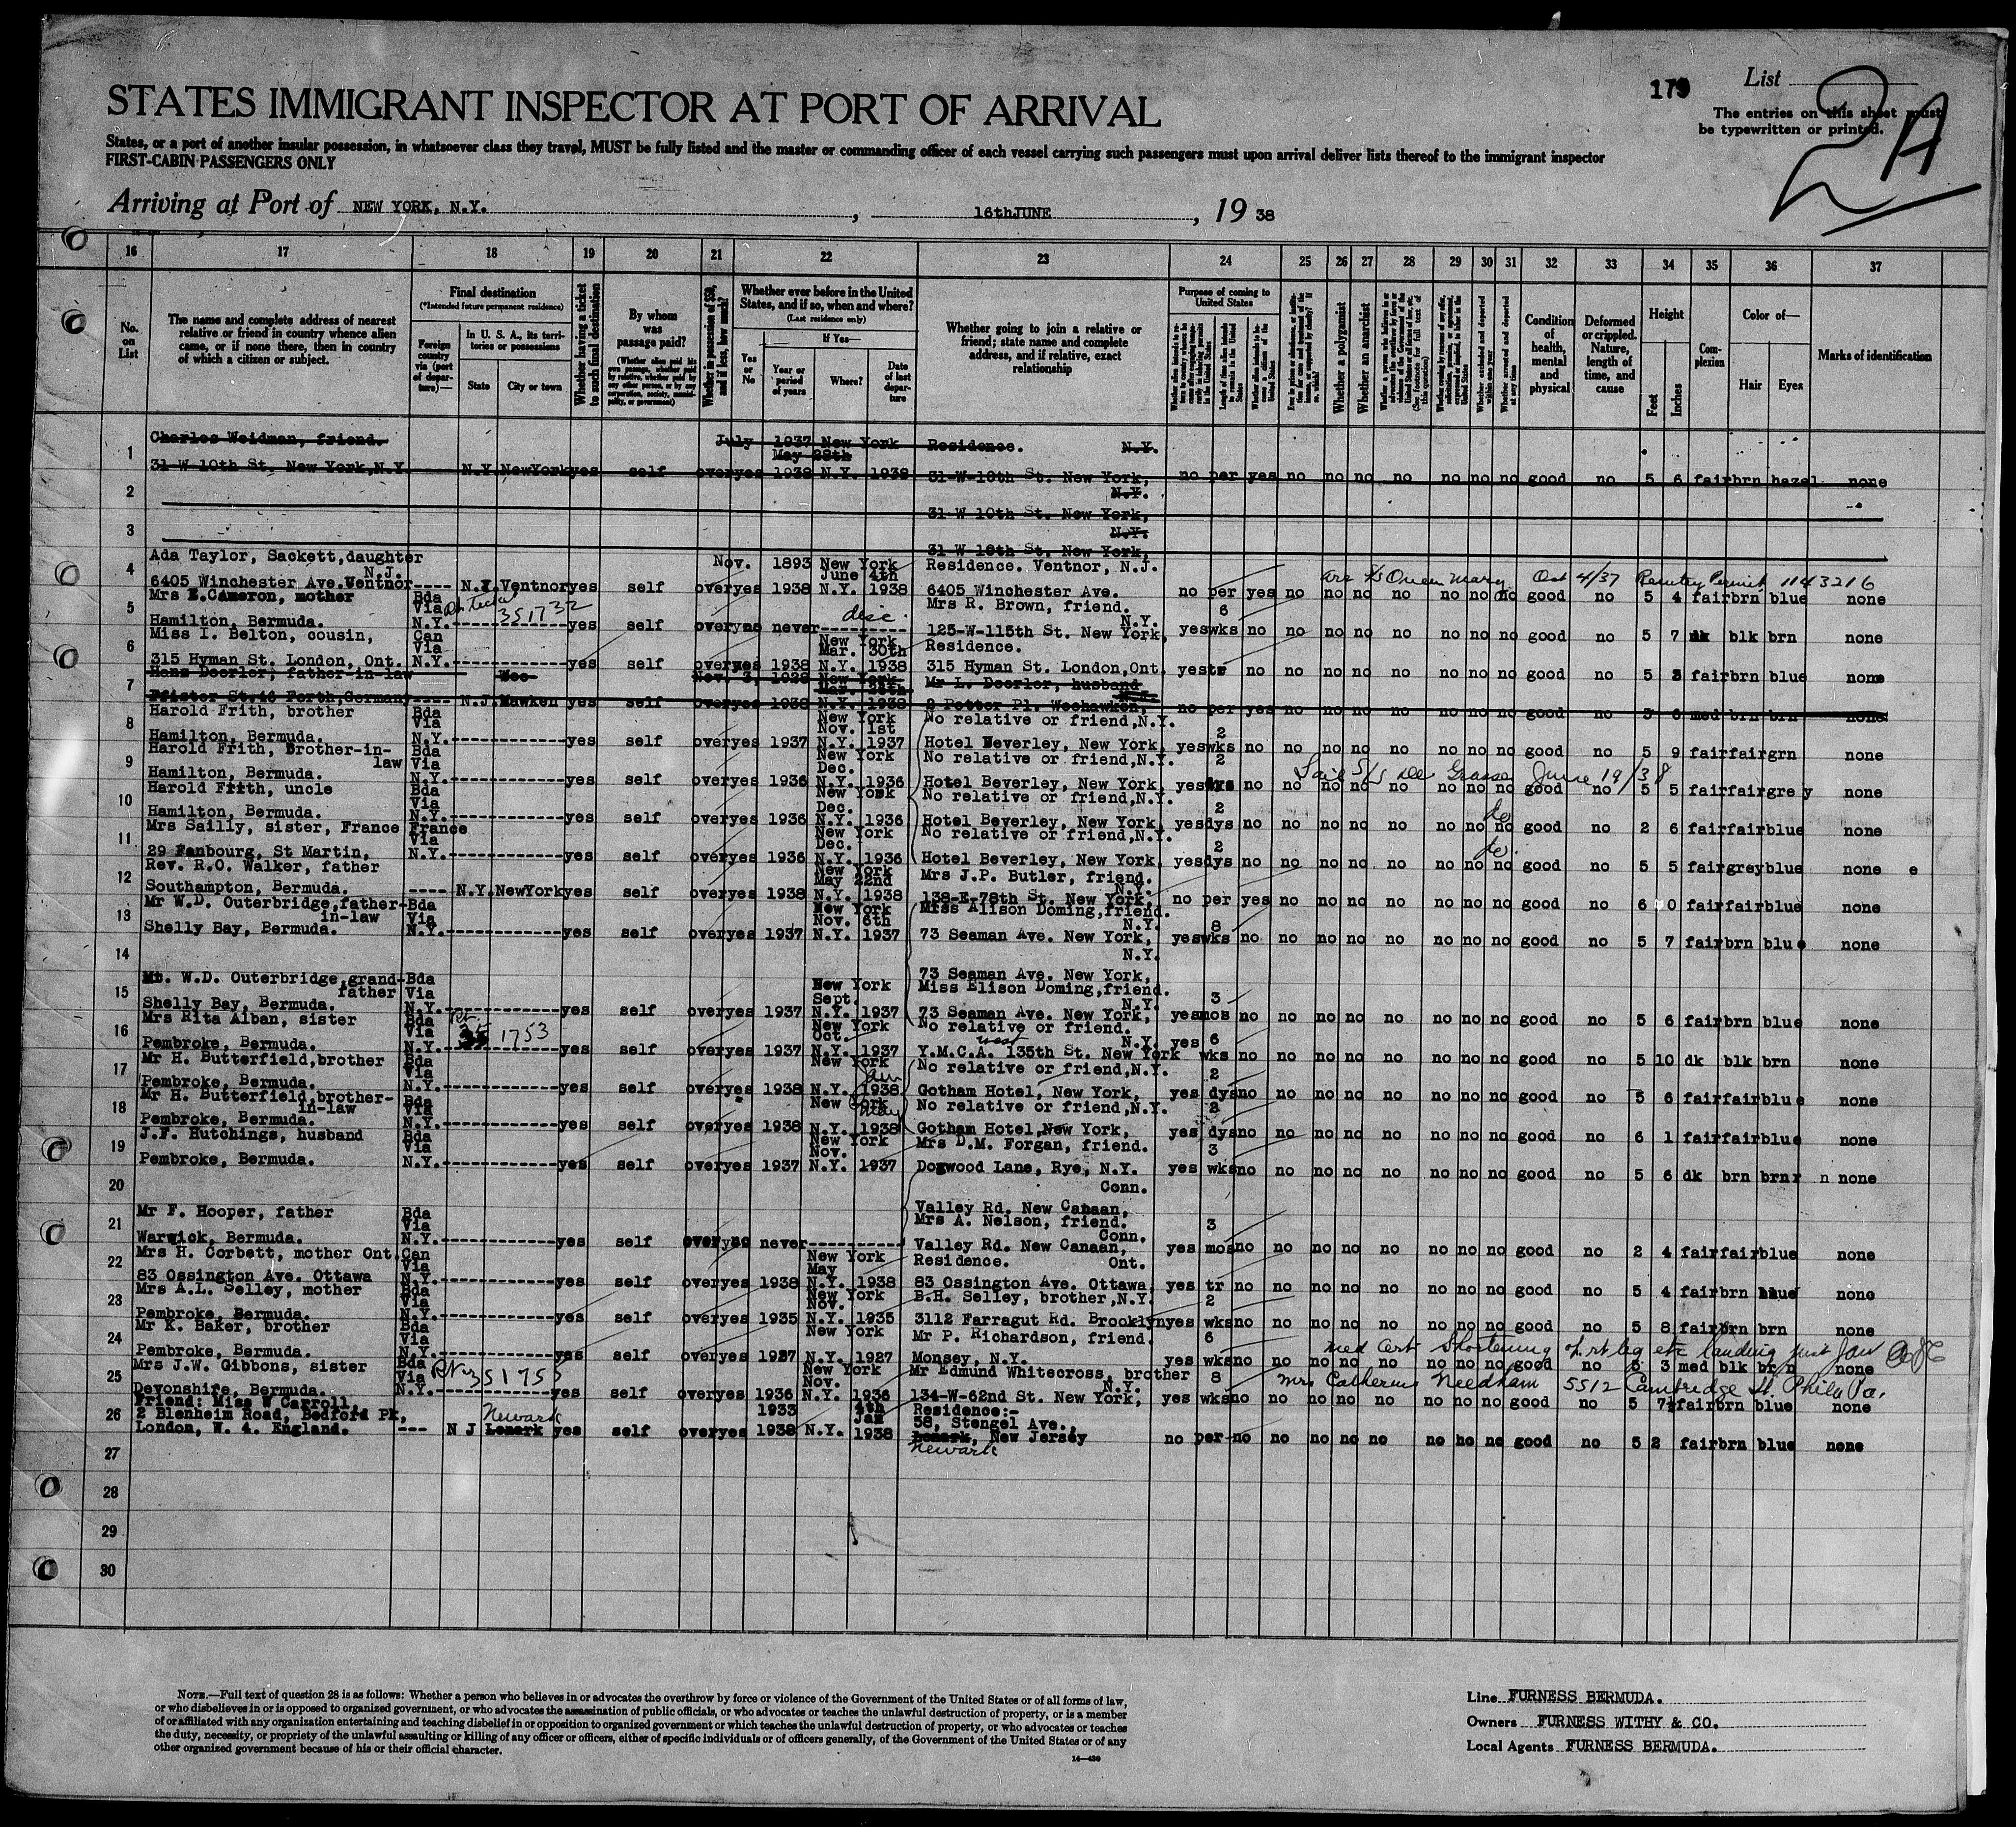 179
List
2A
STATES IMMIGRANT INSPECTOR AT PORT OF ARRIVAL
The entries on this sheet must be typewritten or printed.
States, or a port of another insular possession, in whatsoever class they travel, MUST be fully listed and the master or commanding officer of each vessel carrying such passengers must upon arrival deliver lists thereof to the immigrant inspector
FIRST-CABIN PASSENGERS ONLY
Arriving at Port of NEW YORK, N.Y. , 16thJUNE , 19 38
16 17 18 19 20 21 22 23 24 25 26 27 28 29 30 31 32 33 34 35 36 37
No. on List
The name and complete address of nearest relative or friend in country whence alien came, or if none there, then in country of which a citizen or subject.
Final destination
(*Intended future permanent residence)
Foreign country via (port of departure)—
In U. S. A., its territories or possessions
State
City or town
Whether having a ticket to such final destination
By whom was passage paid?
Whether in possession of $50, and if less, how much?
Whether ever before in the United States, and if so, when and where?
(Last residence only)
Yes or No
If Yes—
Year or period of years
Where?
Date of last departure
Whether going to join a relative or friend; state name and complete address, and if relative, exact relationship
Purpose of coming to United States
Whether a polygamist
Whether an anarchist
Condition of health, mental and physical
Deformed or crippled. Nature, length of time, and cause
Height
Feet
Inches
Complexion
Color of—
Hair
Eyes
Marks of identification
1 Charles Weidman, friend. July 1937 New York Residence. N.Y.
May 28th
31 W 10th St. New York,N.Y. N.Y. NewYork yes self over yes 1938 N.Y. 1938 31-W-10th St. New York, no per yes no no no no no no no good no 5 6 fair brn hazel none
N.Y.
2
31 W 10th St. New York,
N.Y.
3
31 W 10th St. New York,
4 Ada Taylor, Sackett,daughter Nov. 1893 New York Residence. Ventnor, N.J.
N.J. June 4th arr Queen Mary Oct 4/37 Reentry Permit 1143216
6405 Winchester Ave.Ventnor---- N.J. Ventnor yes self over yes 1938 N.Y. 1938 6405 Winchester Ave. no per yes no no no no no no no good no 5 4 fair brn blue none
5 Mrs E.Cameron, mother Bda Via 351732 disc Mrs R. Brown, friend. 6
N.Y.
Hamilton, Bermuda. N.Y. yes self over no never 125-W-115th St. New York, yes wks no no no no no no no no good no 5 7 dk blk brn none
6 Miss I. Belton, cousin, Can Via New York Residence.
Mar. 30th
315 Hyman St. London, Ont. N.Y. yes self over yes 1938 N.Y. 1938 315 Hyman St. London,Ont. yes tr no no no no no no no no good no 5 fair brn blue none
7 Hans Doerler, father-in-law Wee Nov. 3, 1928 New York Mr L. Doerler, husband
Pfister St.46 Forth,Germany---- N.J. Hawken yes self over yes 1938 N.Y. 1938 2 Potter Pl. Weehawken, no per yes no no no no no no no good no 5 6 med brn brn none
8 Harold Frith, brother Bda Via New York No relative or friend,N.Y.
Nov. 1st 2
Hamilton, Bermuda. N.Y. yes self over yes 1937 N.Y. 1937 Hotel Beverley, New York, yes wks no no no no no no no no good no 5 9 fair fair grn none
9 Harold Frith, Brother-in-law Bda Via New York No relative or friend,N.Y. 2
Dec. Sail S/S De Grasse June 19/38
Hamilton, Bermuda. N.Y. yes self over yes 1936 N.Y. 1936 Hotel Beverley, New York yes dys no no no no no no no no good no 5 5 fair fair grey none
10 Harold Frith, uncle Bda Via New York No relative or friend,N.Y.
Dec. 2 do
Hamilton, Bermuda. N.Y. yes self over yes 1936 N.Y. 1936 Hotel Beverley, New York, yes dys no no no no no no no no good no 2 6 fair fair blue none
11 Mrs Sailly, sister, France France Via New York No relative or friend,N.Y.
Dec. 2 do.
29 Fanbourg, St Martin, N.Y. yes self over yes 1936 N.Y. 1936 Hotel Beverley, New York, yes dys no no no no no no no no good no 5 5 fair grey blue none e
12 Rev. R.O. Walker, father New York Mrs J.P. Butler, friend.
May 22nd N.Y.
Southampton, Bermuda. ---- N.Y. NewYork yes self over yes 1938 N.Y. 1938 138-E-78th St. New York, no per yes no no no no no no no good no 6 0 fair fair blue none
13 Mr W.D. Outerbridge,father-in-law Bda Via New York Miss Alison Doming,friend.
Nov. 6th N.Y. 8
Shelly Bay, Bermuda. N.Y. yes self over yes 1937 N.Y. 1937 73 Seaman Ave. New York, yes wks no no no no no no no no good no 5 7 fair brn blue none
14 N.Y.
73 Seaman Ave. New York,
15 Mr. W.D. Outerbridge,grand-father Bda Via New York Miss Elison Doming,friend.
Sept. N.Y. 3
Shelly Bay, Bermuda. N.Y. yes self over yes 1937 N.Y. 1937 73 Seaman Ave. New York, yes mos no no no no no no no no good no 5 6 fair brn blue none
16 Mrs Rita Alban, sister Bda Via 1753 New York No relative or friend.
Oct. west N.Y. yes 6
Pembroke, Bermuda. N.Y. yes self over yes 1937 N.Y. 1937 Y.M.C.A. 135th St. New York wks no no no no no no no no good no 5 10 dk blk brn none
17 Mr H. Butterfield,brother Bda Via New York No relative or friend,N.Y.
Jan 2
Pembroke, Bermuda. N.Y. yes self over yes 1938 N.Y. 1938 Gotham Hotel, New York, yes dys no no no no no no no no good no 5 6 fair fair blue none
18 Mr H. Butterfield,brother-in-law Bda Via New York No relative or friend,N.Y.
May 2
Pembroke, Bermuda. N.Y. yes self over yes 1938 N.Y. 1938 Gotham Hotel,New York, yes dys no no no no no no no no good no 6 1 fair fair blue none
19 J.F. Hutchings, husband Bda Via New York Mrs D.M. Forgan, friend.
Nov. 3
Pembroke, Bermuda. N.Y. yes self over yes 1937 N.Y. 1937 Dogwood Lane, Rye, N.Y. yes wks no no no no no no no no good no 5 6 dk brn brn n none
20 Conn.
Valley Rd. New Canaan,
21 Mr F. Hooper, father Bda Via Mrs A. Nelson, friend. 3
Conn.
Warwick, Bermuda. N.Y. yes self over no never Valley Rd. New Canaan, yes mos no no no no no no no no good no 2 4 fair fair blue none
22 Mrs H. Corbett, mother Ont. Can New York Residence. Ont.
May
83 Ossington Ave. Ottawa N.Y. yes self over yes 1938 N.Y. 1938 83 Ossington Ave. Ottawa, yes tr no no no no no no no no good no 5 4 fair brn blue none
23 Mrs A.L. Selley, mother Bda Via New York B.H. Selley, brother,N.Y.
Nov. 2
Pembroke, Bermuda. N.Y. yes self over yes 1935 N.Y. 1935 3112 Farragut Rd. Brooklyn yes wks no no no no no no no no good no 5 8 fair brn brn none
24 Mr K. Baker, brother Bda Via New York Mr P. Richardson, friend. 6
med cert Shortening of rt leg etc landing
Pembroke, Bermuda. N.Y. yes self over yes 1927 N.Y. 1927 Monsey, N.Y. yes wks no no no no no no no no good no 5 3 med blk brn none
25 Mrs J.W. Gibbons, sister Bda Via 351753 New York Mr Edmund Whitecross, brother
Nov. N.Y. 8 Mrs Catherine Needham 5512 Cambridge St. Phila Pa.
Devonshire, Bermuda. N.Y. yes self over yes 1936 N.Y. 1936 134-W-62nd St. New York, yes wks no no no no no no no no good no 5 7½ fair brn blue none
26 Friend: Miss W Carroll, 1933 4th Jan Residence:-
2 Blenheim Road, Bedford Pk, Newark 58, Stengel Ave.,
London, W. 4. England. --- N J Lemark yes self over yes 1938 N.Y. 1938 Lemark, New Jersey no per no no no no no no no no good no 5 2 fair brn blue none
Newark
27
28
29
30
NOTE.—Full text of question 28 is as follows: Whether a person who believes in or advocates the overthrow by force or violence of the Government of the United States or of all forms of law,
or who disbelieves in or is opposed to organized government, or who advocates the assassination of public officials, or who advocates or teaches the unlawful destruction of property, or is a member
of or affiliated with any organization entertaining and teaching disbelief in or opposition to organized government or which teaches the unlawful destruction of property, or who advocates or teaches
the duty, necessity, or propriety of the unlawful assaulting or killing of any officer or officers, either of specific individuals or of officers generally, of the Government of the United States or of any
other organized government because of his or their official character.
14—430
Line FURNESS BERMUDA.
Owners FURNESS WITHY & CO.
Local Agents FURNESS BERMUDA.